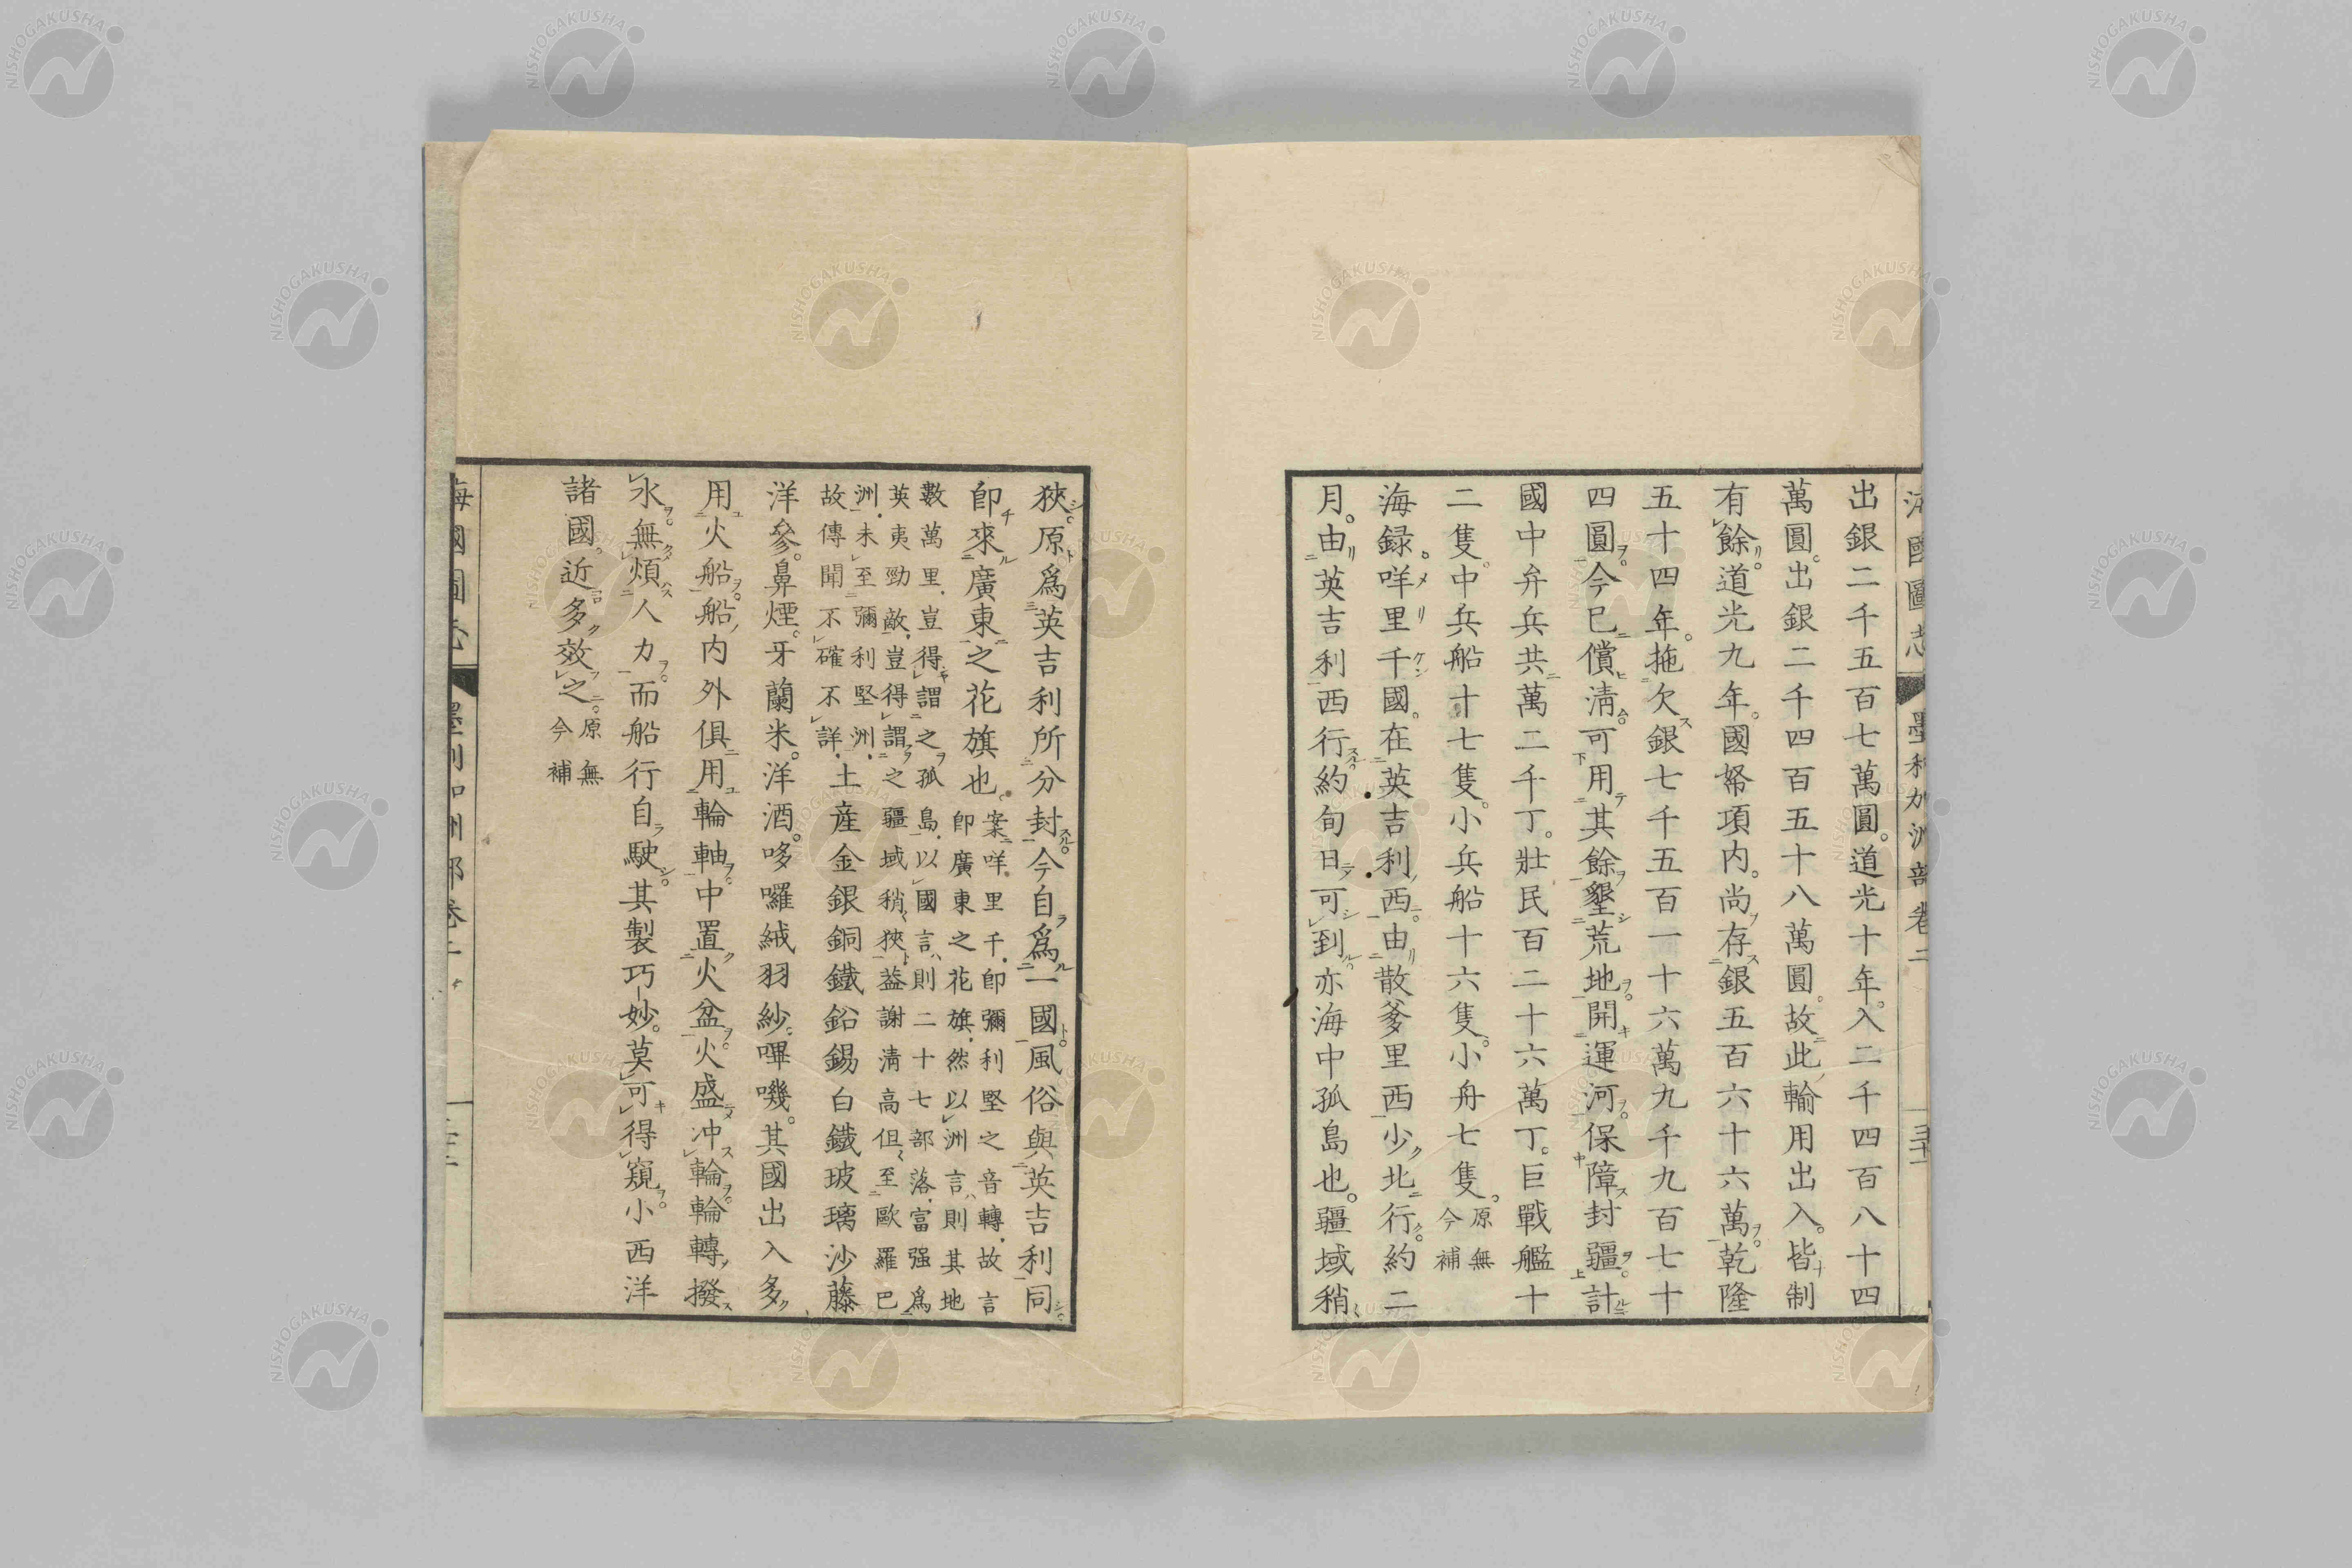 出銀二千五百七萬圓。道光十年。入二千四百八十四
萬圓。出銀二千四百五十八萬圓。故此輸用出入。皆制
有餘。道光九年。國帑項内。尚存銀五百六十六萬。乾隆
五十四年。拖欠銀七千五百一十六萬九千九百七十
四圓。今已償淸。可用其餘墾荒地。開運河。保障封疆。計
國中弁兵共萬二千丁。壯民百二十六萬丁。巨戰艦十
二隻。中兵船十七隻。小兵船十六隻。小舟七隻。原無今補
海録。咩里千國。在英吉利西。由散爹里西少北行。約二
月。由英吉利西行。約旬日可到。亦海中孤島也。疆域稍
狹。原爲英吉利所分封。今自爲一國。風俗與英吉利同。
卽來廣東之花旗也。
案咩里千卽彌利堅之音轉。故言
卽廣東之花旗。然以洲言。則其地
數萬里。豈得謂之孤島。以國言。則二十七部落。富强爲
英夷勁敵。豈得謂之疆域稍狹。葢謝淸高但至歐羅巴
洲。未至彌利堅洲。
故傳聞不確不詳。
土産金銀銅鐵鉛錫白鐵玻璃沙藤
洋參。鼻煙。牙蘭米。洋酒。哆囉絨羽紗。嗶嘰。其國出入多
用火船。船内外俱用輪軸。中置火盆。火盛冲輪。輪轉撥
水。無煩人力。而船行自駛。其製巧妙。莫可得窺。小西洋
諸國。近多效之。原無今補